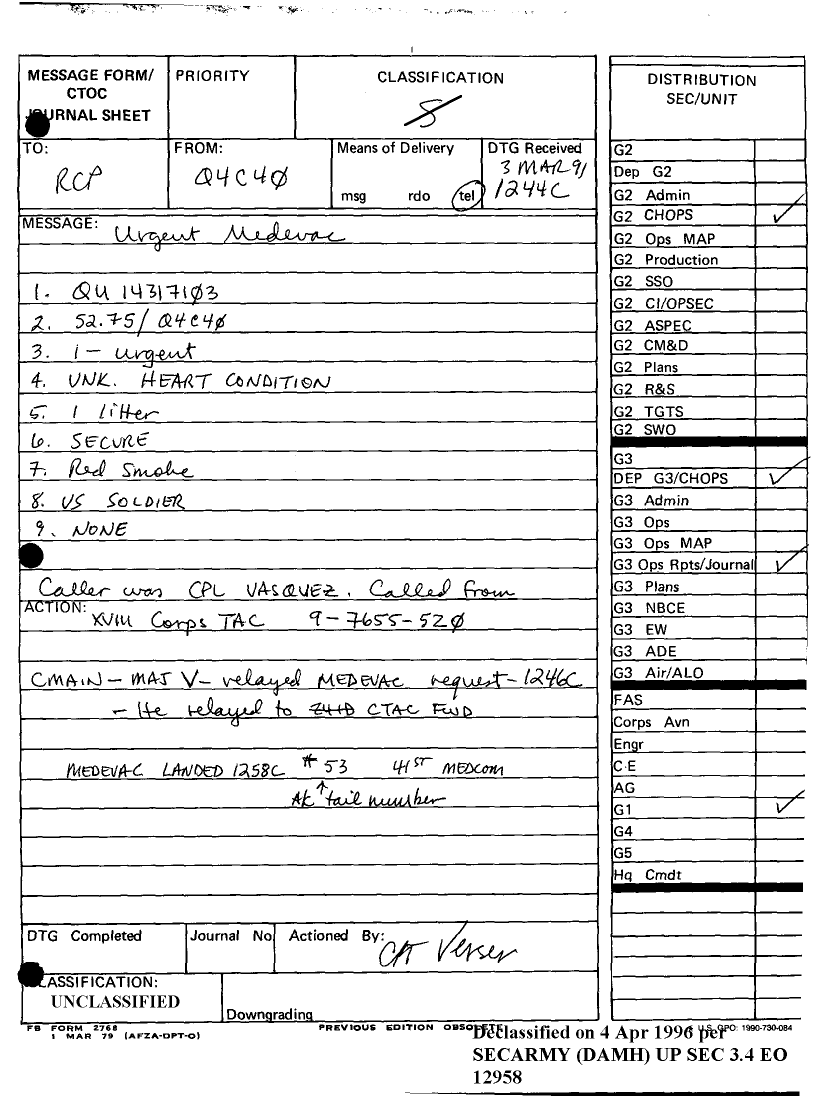 MESSAGE FORM/ CTOC JOURNAL SHEET
PRIORITY
CLASSIFICATION
S
DISTRIBUTION
SEC/UNIT
TO:
RCP
FROM:
Q4C4Ø
Means of Delivery
msg rdo tel
DTG Received
3 MAR 91
1244C
MESSAGE: Urgent Medevac
1. QU 143171Ø3
2. 52.75/ Q4C4Ø
3. 1 - urgent
4. UNK. HEART CONDITION
5. 1 litter
6. SECURE
7. Red Smoke
8. US SOLDIER
9. NONE
Caller was CPL VASQUEZ. Called from
ACTION: XVIII Corps TAC 9-7655-52Ø
CMAIN - MAJ V - relayed MEDEVAC request - 1246C
- He relayed to CTAC FWD
MEDEVAC LANDED 1258C # 53 41ST MEDCOM
AC ↑ tail number
DTG Completed
Journal No
Actioned By:
CPT Verser
CLASSIFICATION:
UNCLASSIFIED
Downgrading
G2
Dep G2
G2 Admin
G2 CHOPS ✓
G2 Ops MAP
G2 Production
G2 SSO
G2 CI/OPSEC
G2 ASPEC
G2 CM&D
G2 Plans
G2 R&S
G2 TGTS
G2 SWO
G3
DEP G3/CHOPS ✓
G3 Admin
G3 Ops
G3 Ops MAP
G3 Ops Rpts/Journal ✓
G3 Plans
G3 NBCE
G3 EW
G3 ADE
G3 Air/ALO
FAS
Corps Avn
Engr
C-E
AG
G1 ✓
G4
G5
Hq Cmdt
FB FORM 2768
1 MAR 79 (AFZA-DPT-O)
PREVIOUS EDITION OBSOLETE
U.S. GPO: 1990-730-084
Declassified on 4 Apr 1996 per
SECARMY (DAMH) UP SEC 3.4 EO
12958